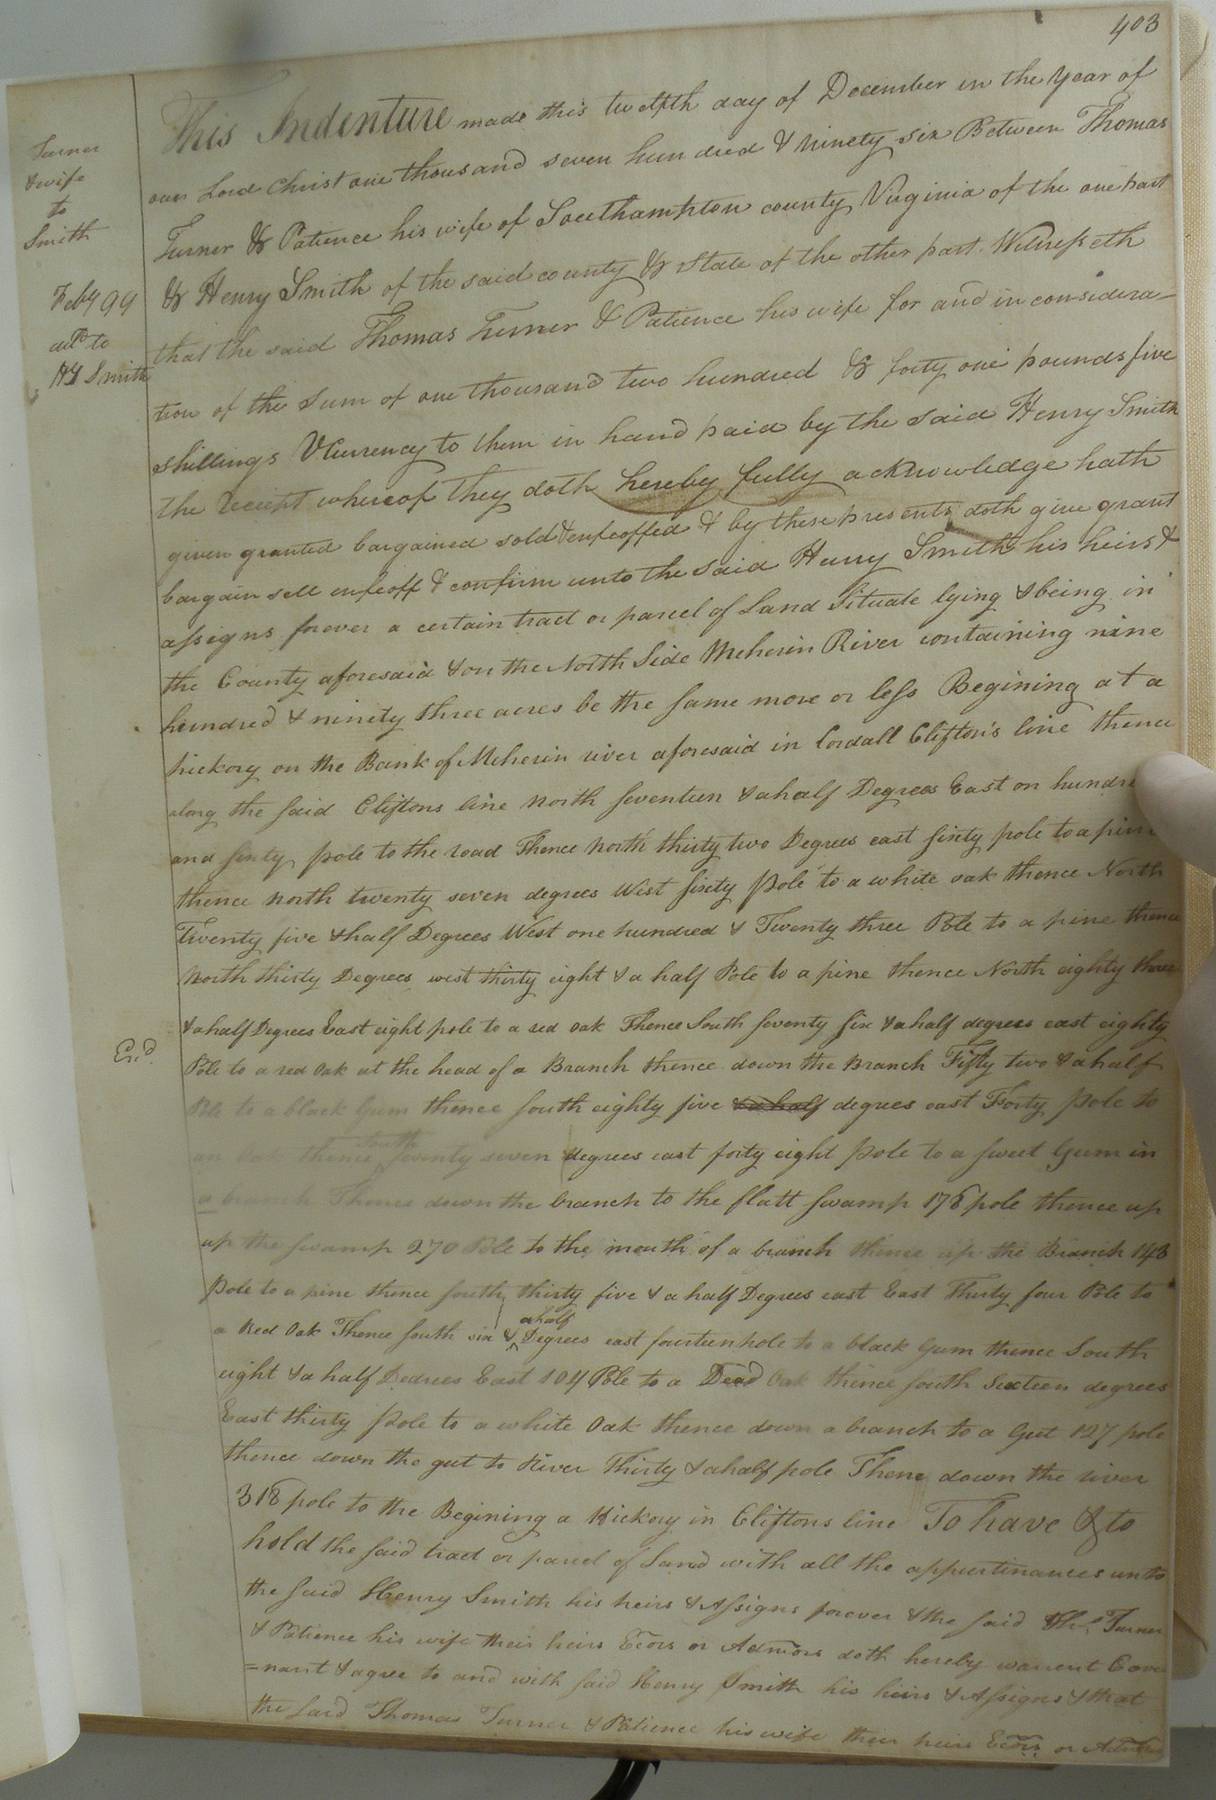 403
Turner
& wife
to
Smith
Feby 99
deld to
Hy Smith
Exd.
This Indenture made this twelfth day of December in the Year of
our Lord Christ one thousand seven hundred & ninety six Between Thomas
Turner & Patience his wife of Southampton county Virginia of the one part
& Henry Smith of the said county & State of the other part. Witnesseth
that the said Thomas Turner & Patience his wife for and in considera-
tion of the Sum of one thousand two hundred & forty one pounds five
shillings VCurrency to them in hand paid by the said Henry Smith
the receipt whereof they doth hereby fully acknowledge hath
given granted bargained sold & enfeoffed & by these presents doth give grant
bargain sell enfeoff & confirm unto the said Henry Smith his heirs &
assigns forever a certain tract or parcel of Land Situate lying & being in
the County aforesaid & on the North Side Meherin River containing nine
hundred & ninety three acres be the same more or less Begining at a
hickory on the Bank of Meherin river aforesaid in Cordall Clifton's line thence
along the said Cliftons line North seventeen & a half Degrees East on hundred
and sixty pole to the road Thence North thirty two Degrees east sixty pole to a pine
thence north twenty seven degrees West sixty pole to a white oak thence North
Twenty five & half Degrees West one hundred & Twenty three Pole to a pine thence
North thirty Degrees west thirty eight & a half Pole to a pine thence North eighty three
& a half Degrees East eight pole to a red oak Thence South seventy six & a half degrees east eighty
Pole to a red oak at the head of a Branch thence down the Branch Fifty two & a half
Pole to a black Gum thence south eighty five & a half degrees east Forty pole to
an oak thence south seventy seven degrees east forty eight pole to a sweet Gum in
a branch Thence down the branch to the flatt swamp 178 pole thence up
up the swamp 270 Pole to the mouth of a branch thence up the Branch 148
pole to a pine thence south thirty five & a half Degrees east East Thirty four Pole to
a Red Oak Thence south six & a half Degrees east fourteen pole to a black Gum thence South
eight & a half Dedrees East 104 Pole to a Dead Oak thence south Sixteen degrees
East thirty pole to a white Oak thence down a branch to a Gut 127 pole
thence down the gut to River Thirty & a half pole Thenc down the river
318 pole to the Begining a Hickory in Cliftons line To have & to
hold the said tract or parcel of Land with all the appurtinances unto
the said Henry Smith his heirs & Assigns forever & the said Tho.s Turner
& Patience his wife their heirs Exors or Admors doth hereby warrent Cove
=nant & agree to and with said Henry Smith his heirs & Assigns & that
the said Thomas Turner & Patience his wife their heirs Exors or